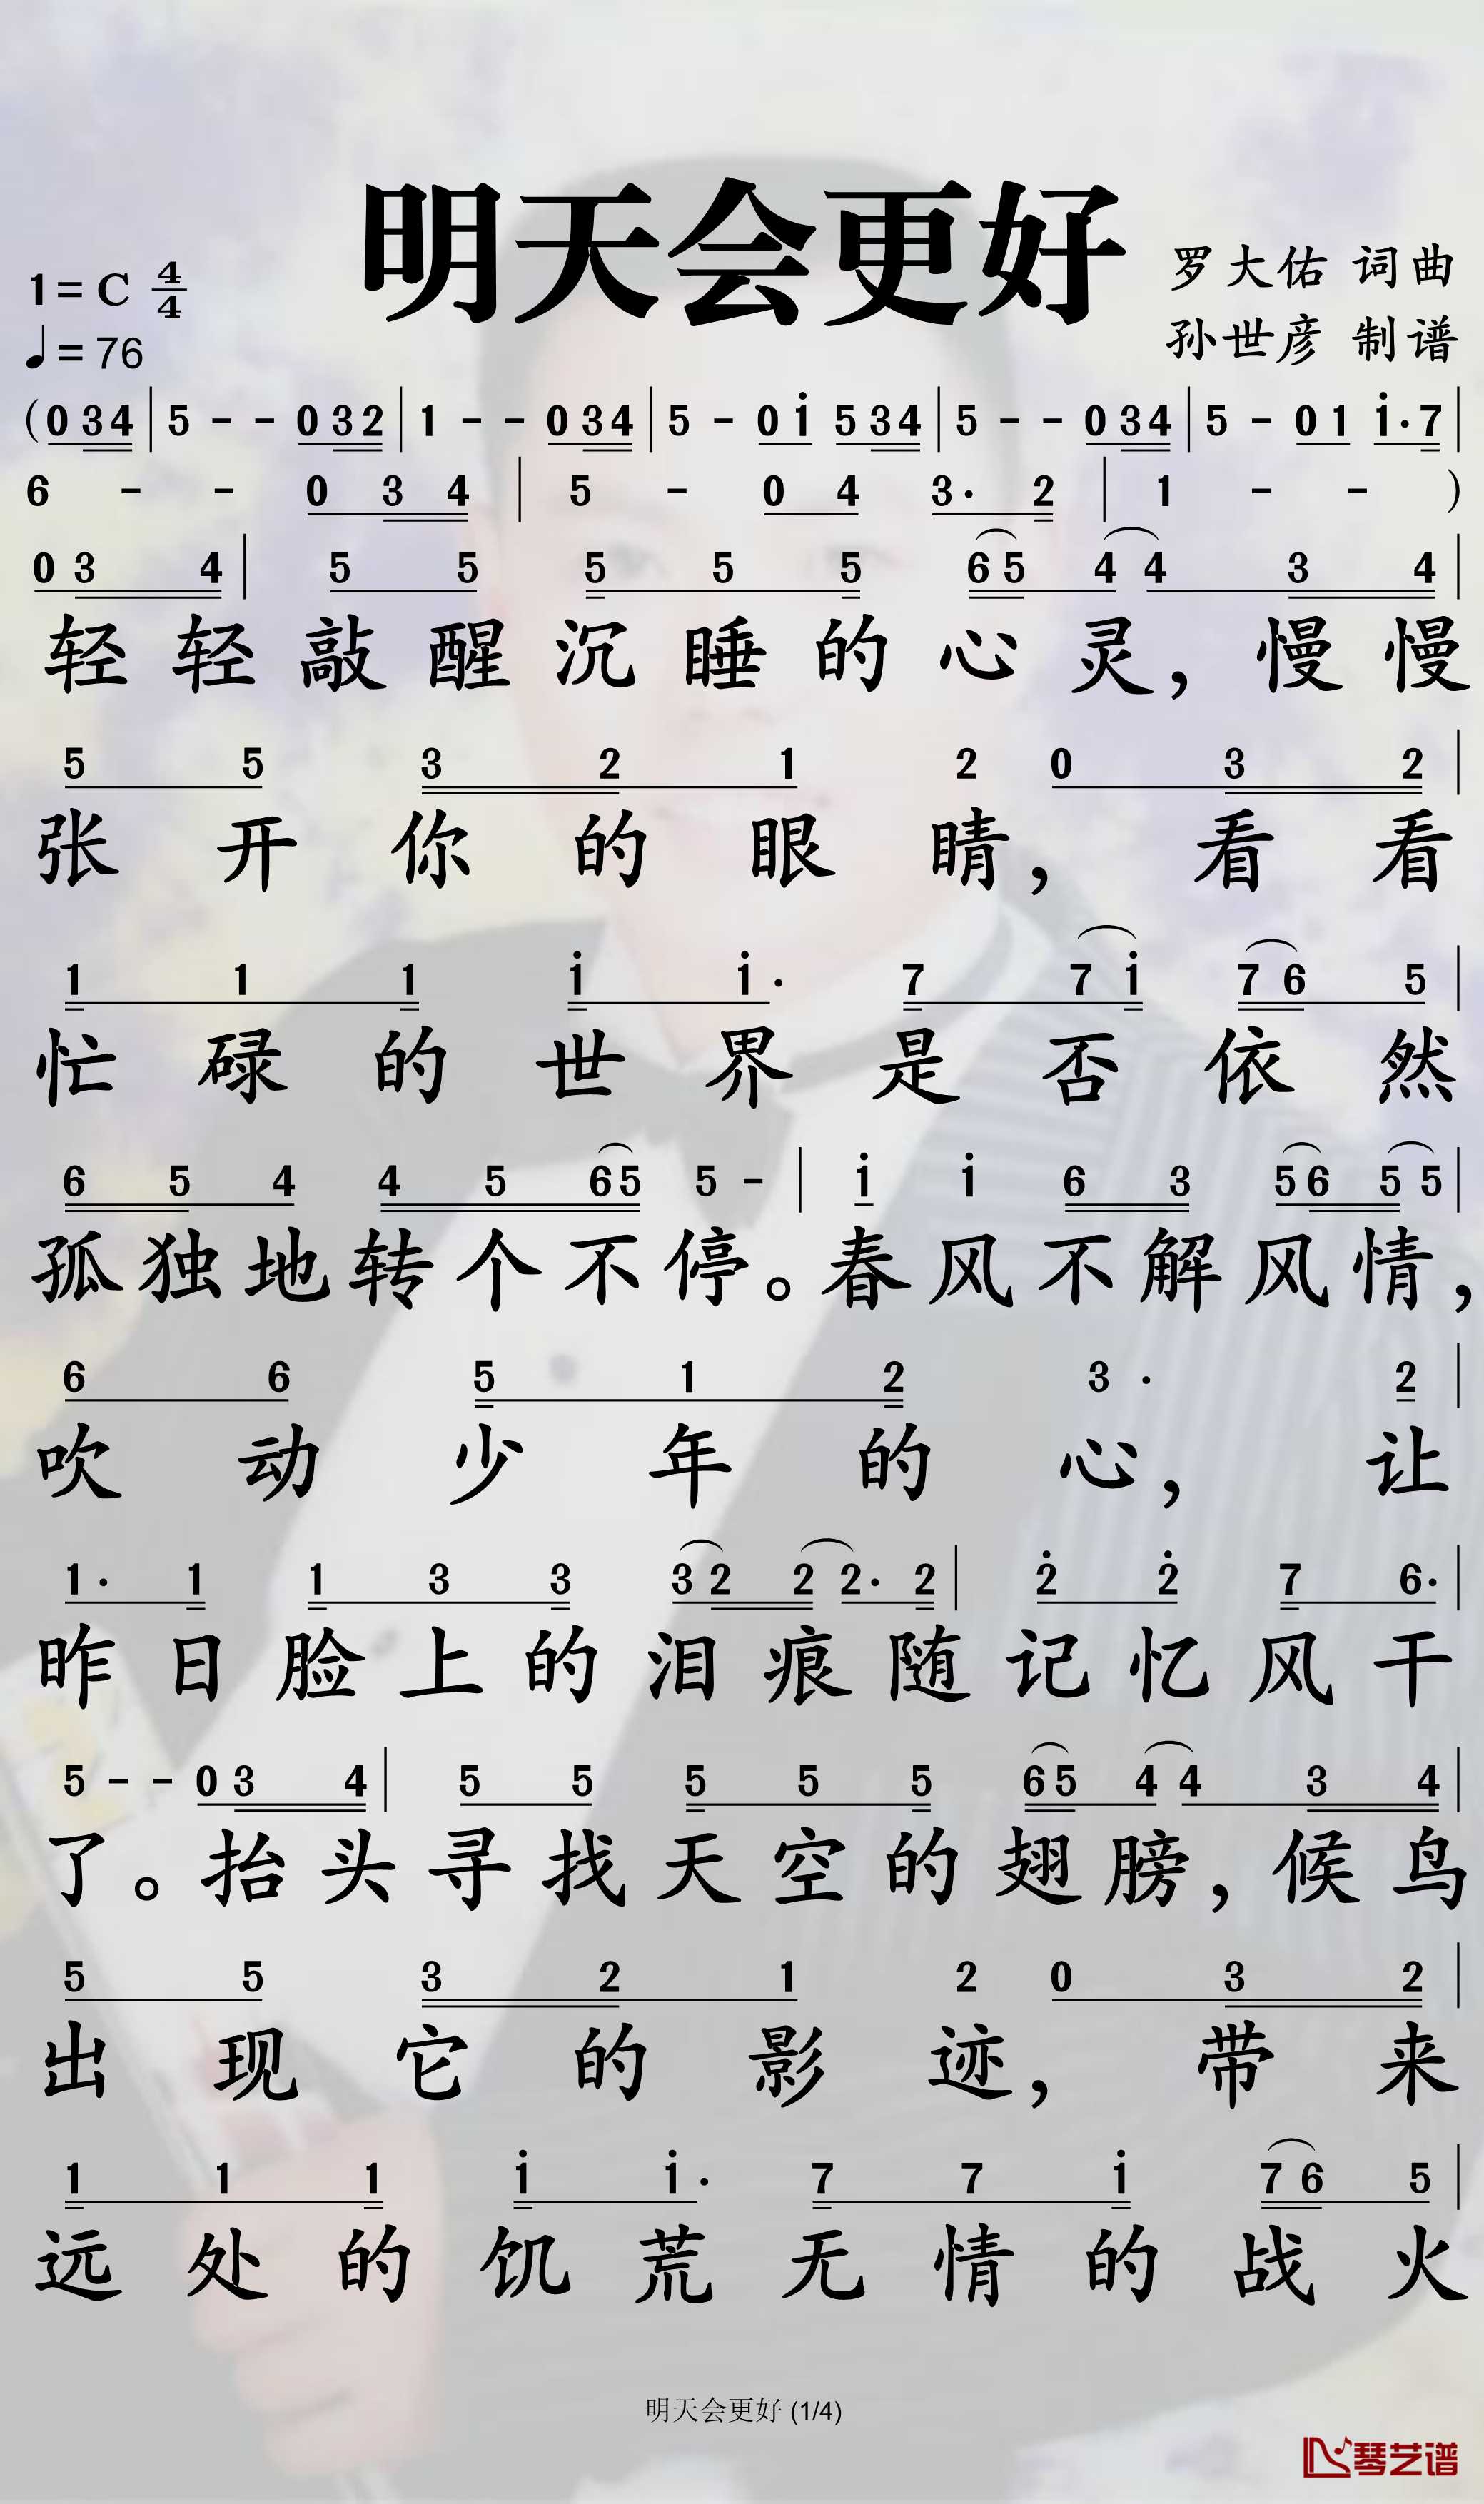 明天会更好
1=C 4/4
罗大佑 词曲
♩=76
孙世彦 制谱
(0 3 4 | 5 - - 0 3 2 | 1 - - 0 3 4 | 5 - 0 i 5 3 4 | 5 - - 0 3 4 | 5 - 0 1 i· 7 |
6 - - 0 3 4 | 5 - 0 4 3· 2 | 1 - - )
0 3 4 | 5 5 5 5 5 6 5 4 4 3 4 |
轻轻敲醒沉睡的心灵，慢慢
5 5 3 2 1 2 0 3 2 |
张开你的眼睛，看看
1 1 1 i i· 7 7 i 7 6 5 |
忙碌的世界是否依然
6 5 4 4 5 6 5 5 - | i i 6 3 5 6 5 5 |
孤独地转个不停。春风不解风情，
6 6 5 1 2 3· 2 |
吹动少年的心，让
1· 1 1 3 3 3 2 2 2· 2 | 2̇ 2̇ 7 6· |
昨日脸上的泪痕随记忆风干
5 - - 0 3 4 | 5 5 5 5 5 6 5 4 4 3 4 |
了。抬头寻找天空的翅膀，候鸟
5 5 3 2 1 2 0 3 2 |
出现它的影迹，带来
1 1 1 i i· 7 7 i 7 6 5 |
远处的饥荒无情的战火
明天会更好 (1/4)
琴艺谱